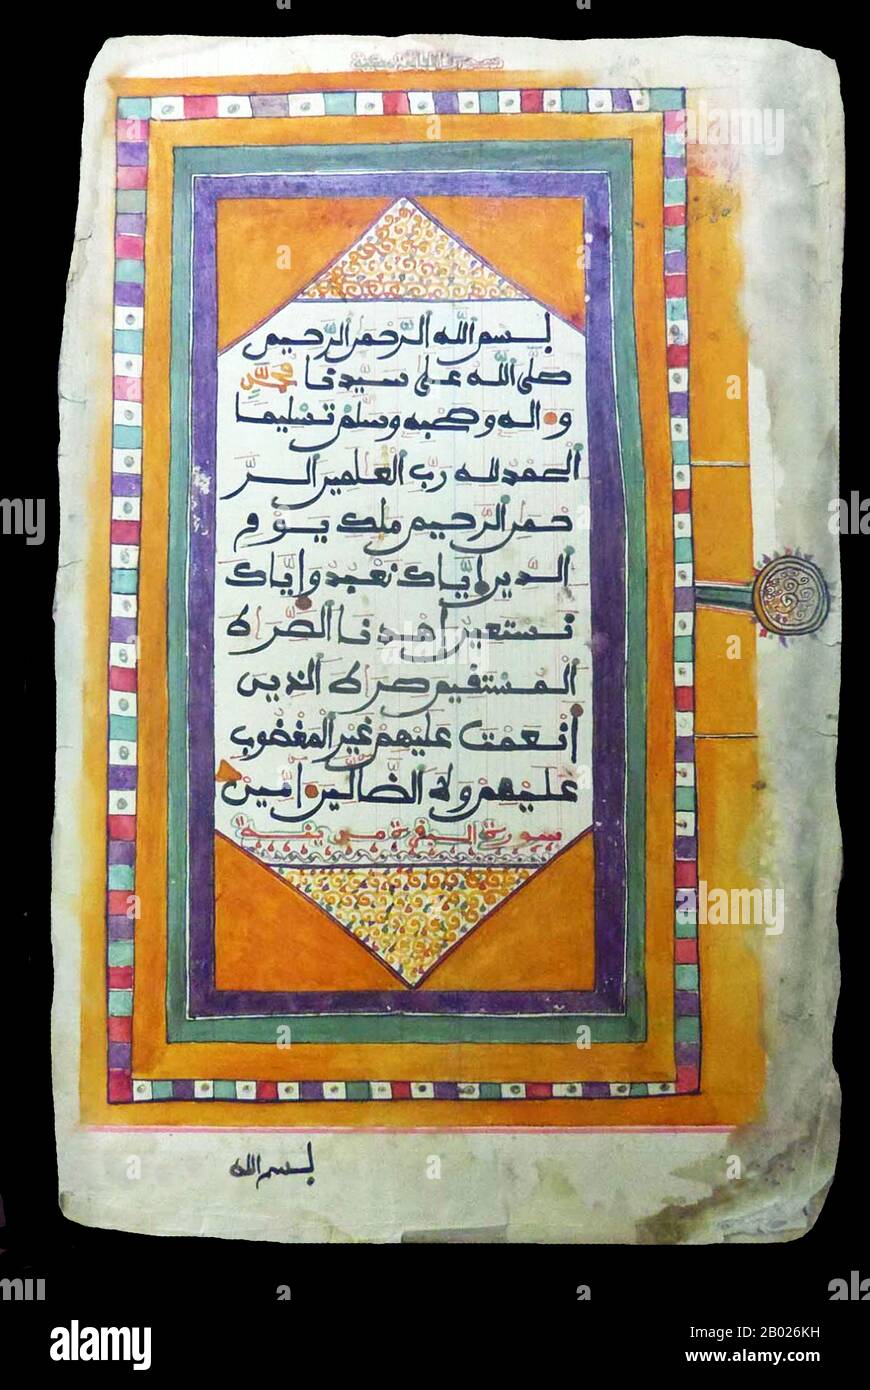 بسم الله الرحمن الرحيم
صلى الله على سيدنا محمد
و اله وصحبه وسلم تسليما
الحمد لله رب العلمين الر
حمن الرحيم ملك يوم
الدين إياك نعبد وإياك
نستعين أهدنا الصراط
المستقيم صراط الذين
أنعمت عليهم غير المغضوب
عليهم ولا الضالين امين
سورة البقرة مدينة
بسم الله
alamy
Image ID: 2B026KH
www.alamy.com